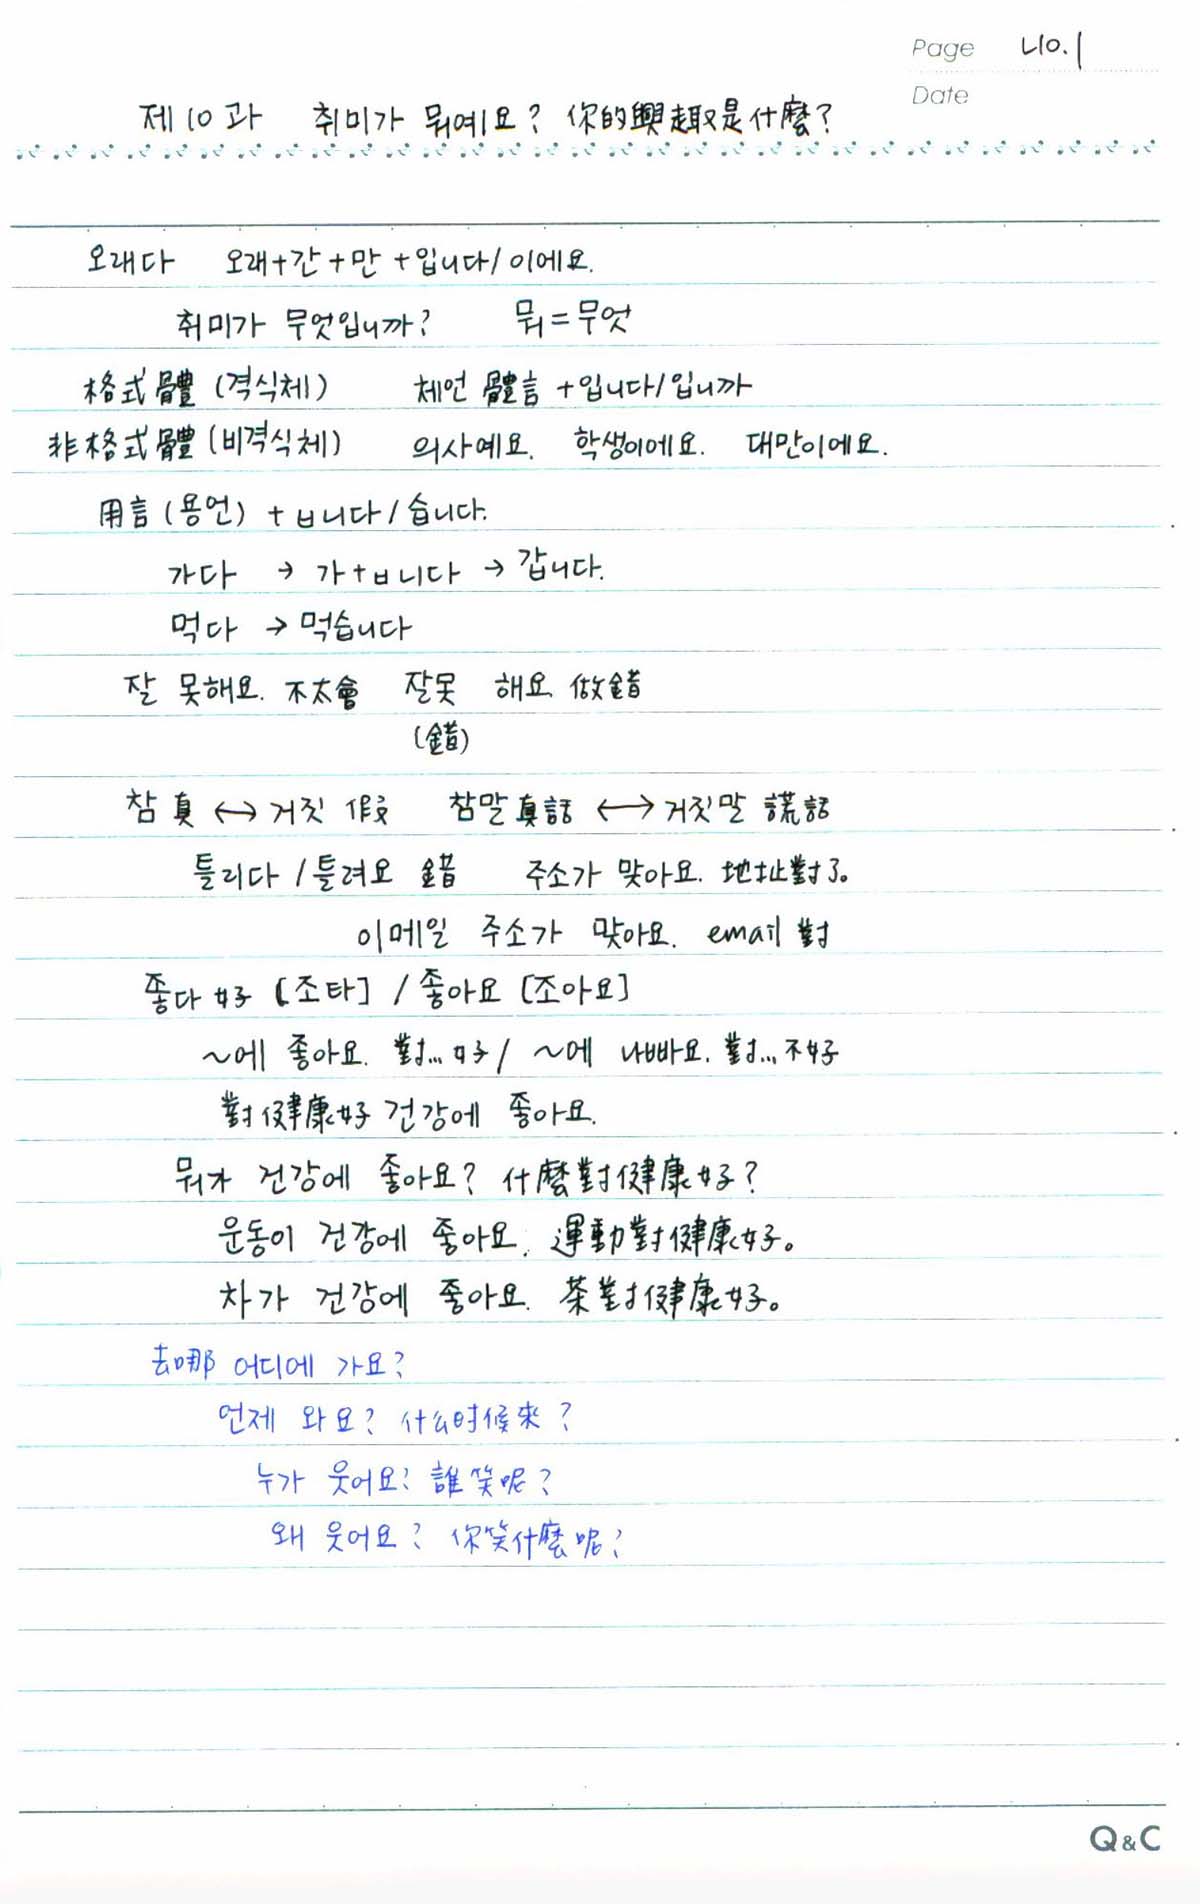 Page L10.1
Date
제10과 취미가 뭐예요? 你的興趣是什麼?
오래다 오래+간+만+입니다/이에요.
취미가 무엇입니까? 뭐=무엇
格式體(격식체) 체언 體言+입니다/입니까
非格式體(비격식체) 의사예요. 학생이에요. 대만이에요.
用言(용언)+ㅂ니다/습니다.
가다 → 가+ㅂ니다 → 갑니다.
먹다 → 먹습니다
잘 못해요. 不太會 잘못 해요. 做錯
(錯)
참 真 ↔ 거짓 假 참말 真話 ↔ 거짓말 謊話
틀리다/틀려요 錯 주소가 맞아요. 地址對了。
이메일 주소가 맞아요. email 對
좋다 好 [조타] / 좋아요 [조아요]
~에 좋아요. 對...好 / ~에 나빠요. 對...不好
對健康好 건강에 좋아요.
뭐가 건강에 좋아요? 什麼對健康好?
운동이 건강에 좋아요. 運動對健康好。
차가 건강에 좋아요. 茶對健康好。
去哪 어디에 가요?
언제 와요? 什么时候來?
누가 웃어요? 誰笑呢?
왜 웃어요? 你笑什麼呢?
Q&C